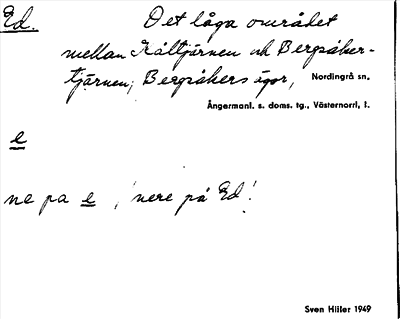 Ed. Det låga området
mellan Kåltjärnen och Bergsåker-
tjärnen; Bergsåkers ägor, Nordingrå sn.
Ångermanl. s. doms. tg., Västernorrl. l.
e
ne pa e 'nere på Ed'.
Sven Hiller 1949